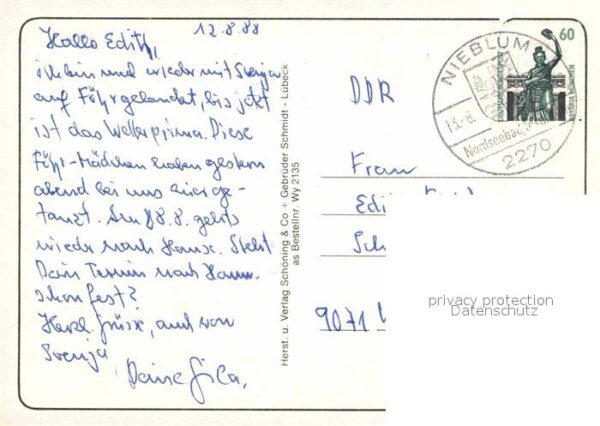 12.8.88
Hallo Edith,
ich bin und wieder mit Svenja
auf Föhr gelandet, bis jetzt
ist das Wetter prima. Diese
Föhr-Mädchen haben gestern
abend bei uns hier ge-
tanzt. Am 18.8. gehts
wieder nach Hause. Steht
Dein Termin nach Hann.
schon fest?
Herzl. Grüße, auch von
Svenja
Deine Gila,
Herst. u. Verlag Schöning & Co + Gebrüder Schmidt - Lübeck
as Bestellnr. Wy 2135
DDR
Frau
Edi
Sch
9071
NIEBLUM
13.-8.
Nordseebad
2270
60
DEUTSCHE BUNDESPOST
BAVARIA MÜNCHEN
privacy protection
Datenschutz